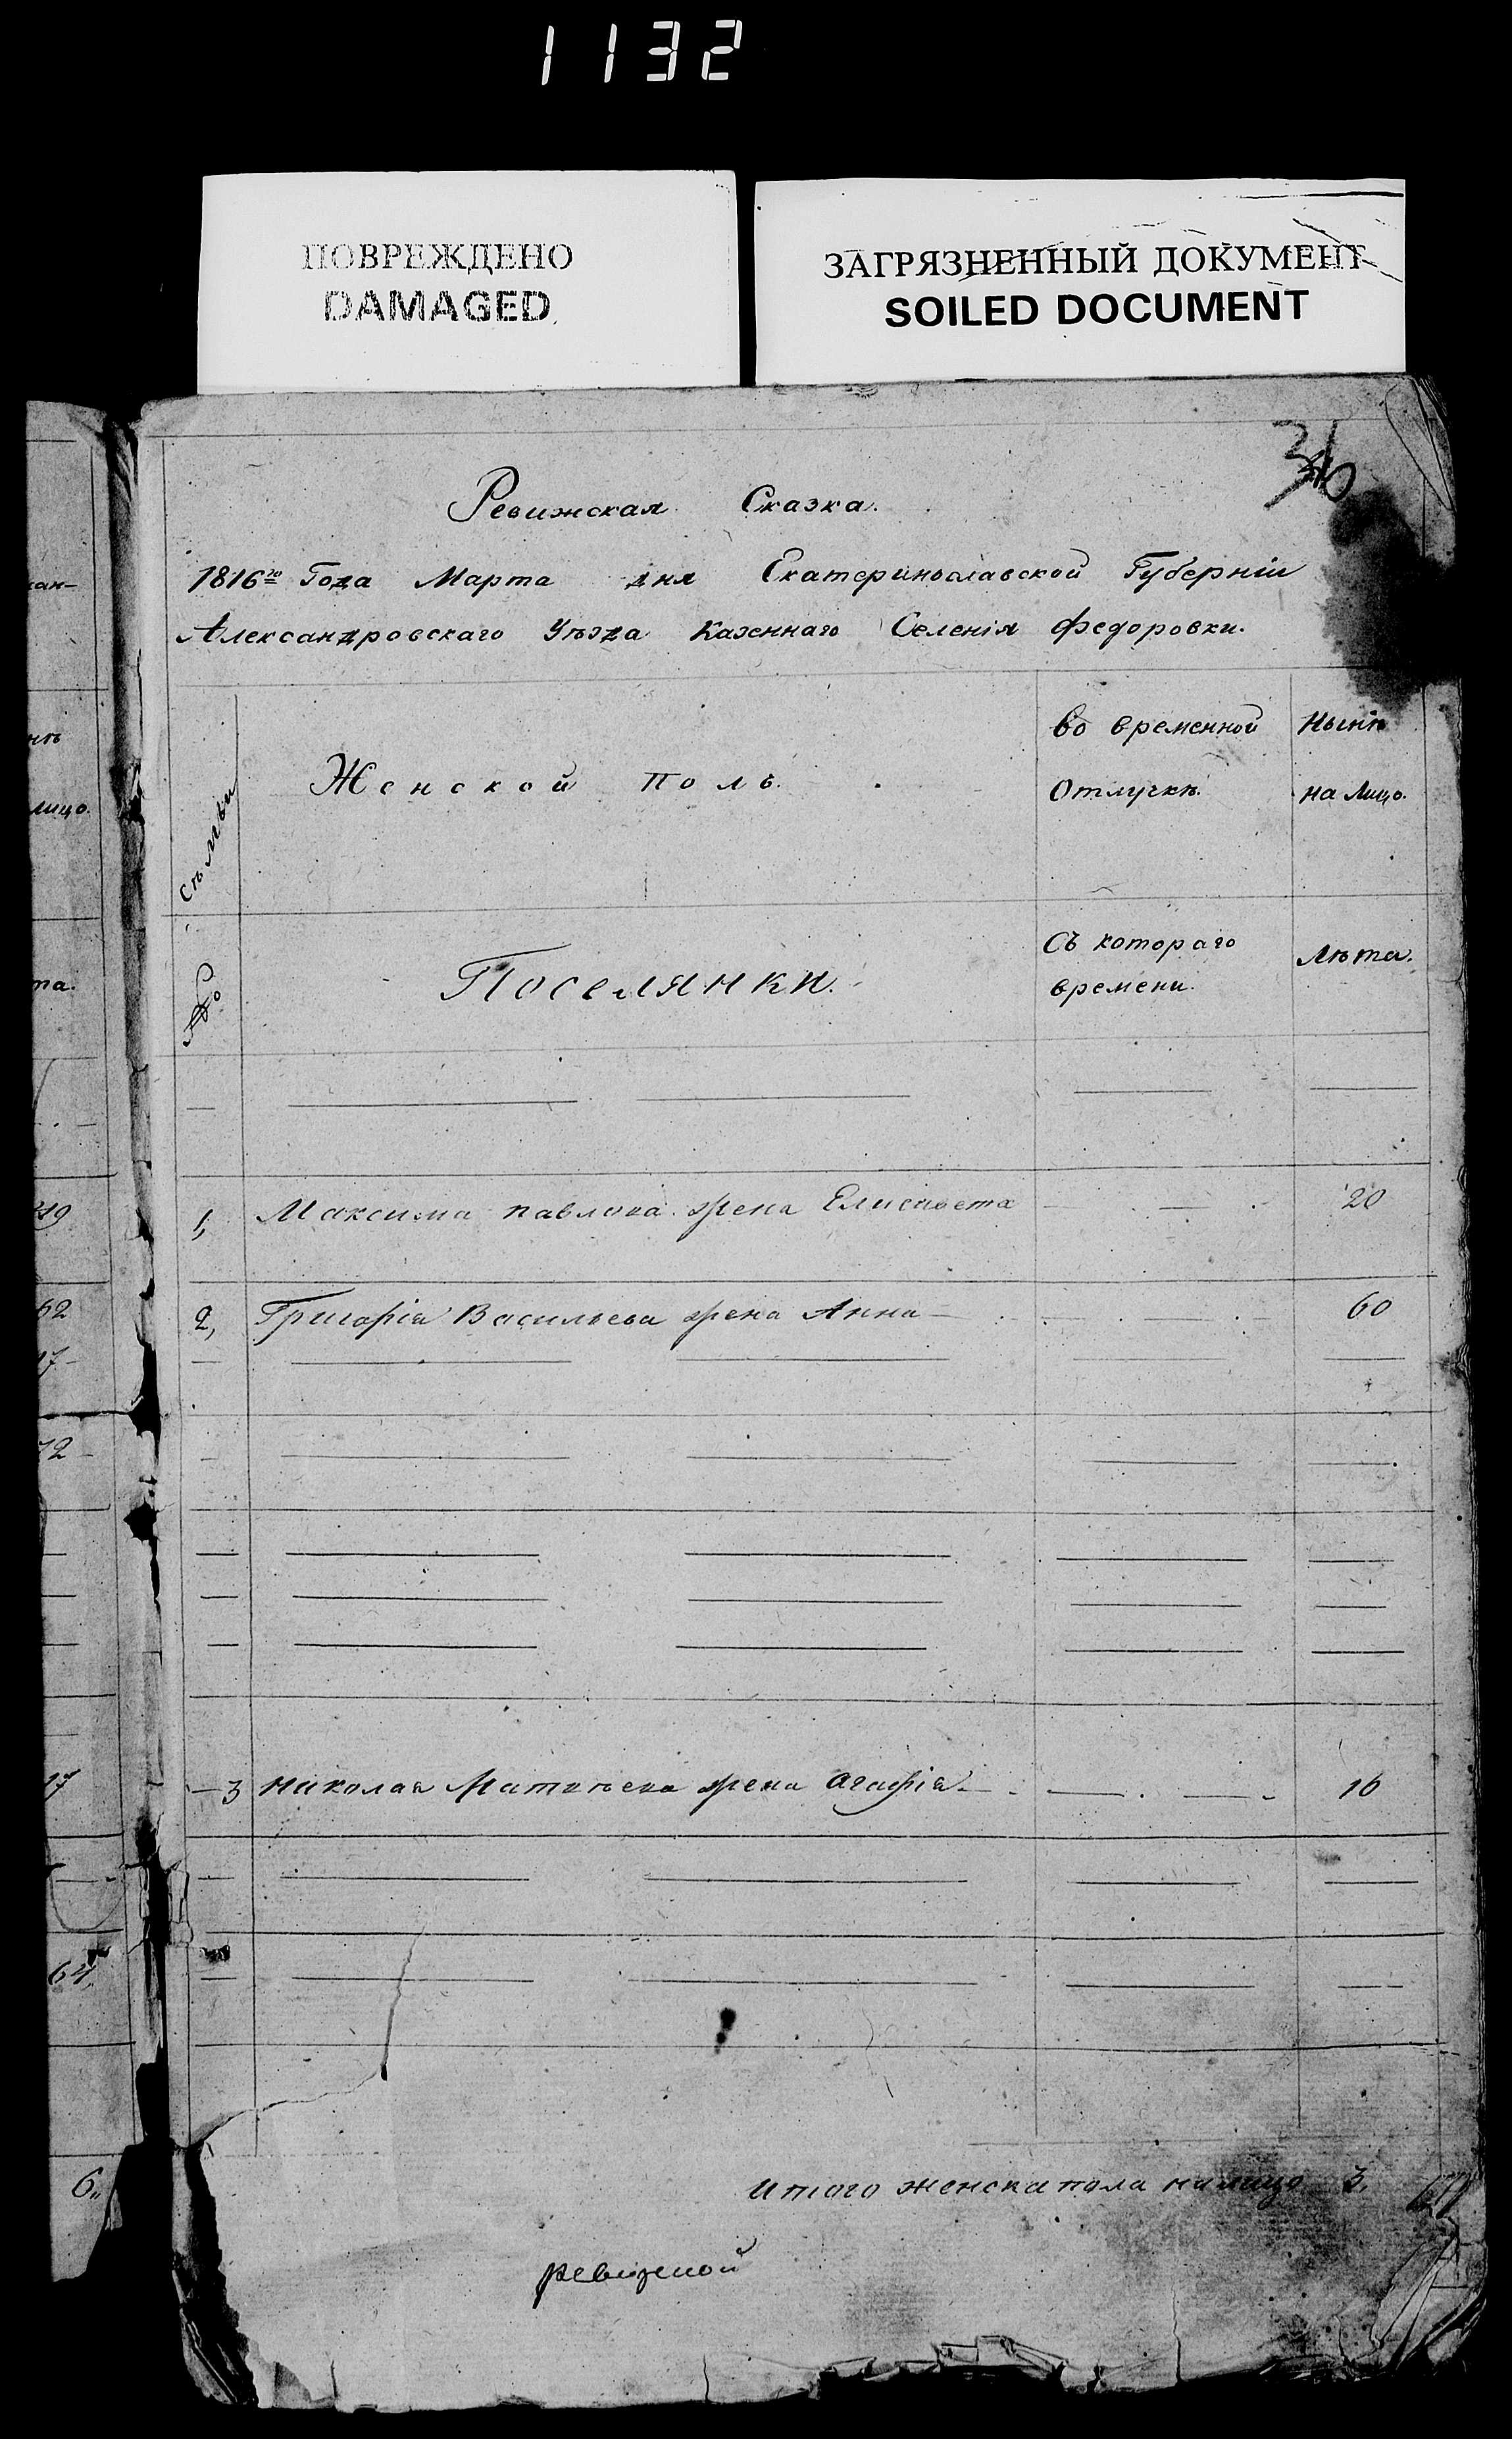 1132
ПОВРЕЖДЕНО
DAMAGED
ЗАГРЯЗНЕННЫЙ ДОКУМЕНТ
SOILED DOCUMENT
Ревижская Сказка.
1816го Года Марта дня Екатеринославской Губерніи
Александровскаго Уѣзда Казеннаго Селенія Федоровки.
№ Сѣмьи
Женской полъ.
во временной Отлучкѣ.
Нынѣ на Лицо.
Поселянки.
Съ котораго времени.
Лѣта.
1, Максима павлова жена Елисавета 20
2, Григорія Васильева жена Анна 60
3 Николая Матвѣева жена Агафія 16
Итого женска пола на лицо 3.
ревизской
лицо.
та.
62
17
72
17
64
6